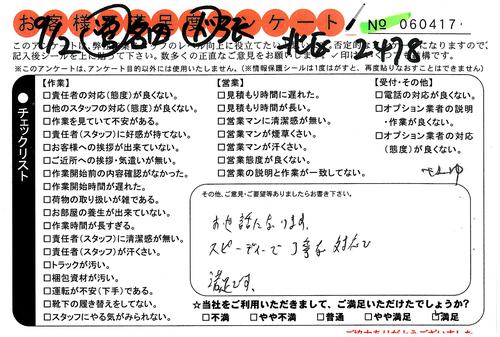 お客様満足度アンケート!
No 060417
9/2
北区
2478
このアンケートは、弊
記入後シールを上に貼って下さい。数多くの正直なご意見をお願いいたします。
※このアンケートは、アンケート目的以外には使用いたしません。(※情報保護シールは1度はがすと、再度貼りなおすことはできません)
●チェックリスト
【作業】
□責任者の対応(態度)が良くない。
□他のスタッフの対応(態度)が良くない。
□作業を見ていて不安がある。
□責任者(スタッフ)に好感が持てない。
□お客様への挨拶が出来ていない。
□ご近所への挨拶・気遣いが無い。
□作業開始前の内容確認がなかった。
□作業開始時間が遅れた。
□荷物の取り扱いが雑である。
□お部屋の養生が出来ていない。
□作業時間が長すぎる。
□責任者(スタッフ)に清潔感が無い。
□責任者(スタッフ)が汗くさい。
□トラックが汚い。
□梱包資材が汚い。
□運転が不安(下手)である。
□靴下の履き替えをしてない。
□スタッフにやる気がみられない。
【営業】
□見積もり時間に遅れた。
□見積もり時間が長い。
□営業マンに清潔感が無い。
□営業マンが煙草くさい。
□営業マンが汗くさい。
□営業態度が良くない。
□営業の説明と作業が一致してない。
【受付・その他】
□電話の対応が良くない。
□オプション業者の説明
・作業が良くない。
□オプション業者の対応
(態度)が良くない。
その他、ご意見・ご要望等ありましたらお書き下さい。
お世話になります。
スピーディーで丁寧な対応で
満足です。
☆当社をご利用いただきまして、ご満足いただけたでしょうか?
□不満 □やや不満 □普通 □やや満足 □満足
ご協力ありがとうございました